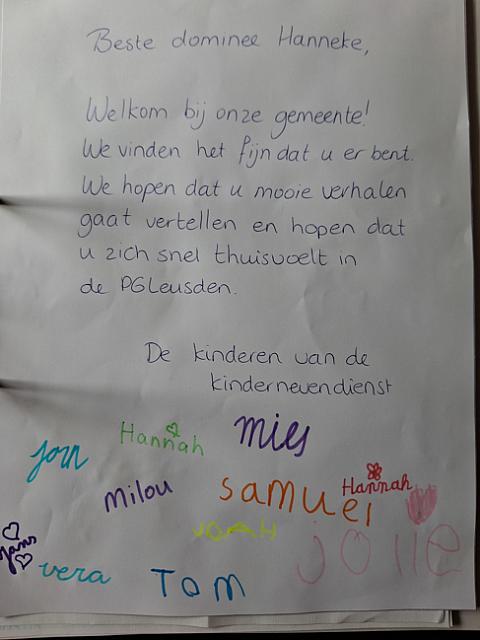 Beste dominee Hanneke,
Welkom bij onze gemeente!
We vinden het fijn dat u er bent.
We hopen dat u mooie verhalen
gaat vertellen en hopen dat
u zich snel thuisvoelt in
de PGLeusden.
De kinderen van de
kindernevendienst
Hannah
mies
Jorn
milou
samuel
Hannah
JOAH
jolie
vera
Tom